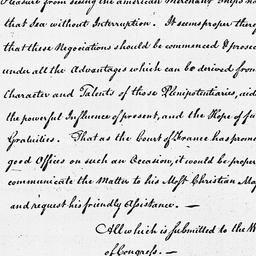 Pleasure from seeing the american Merchant Ships
that Sea without Interruption. It seems proper
that these Negociations should be commenced & prosec
under all the Advantages which can be derived from
Character and Talents of those Plenipotentiaries, aid
the powerful Influence of present, and the Hope of fu
Gratuities. That as the Court of France has prom
good Offices on such an Occasion, it would be proper
communicate the Matter to his Most Christian Ma
and request his friendly Assistance. —
All which is submitted to the W
of Congress. —